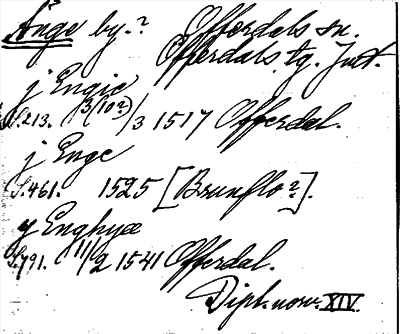 Änge by.? Offerdals sn.
Offerdals tg. Jmt.
j Engie
S.213. (3(10?)/3 1517 Offerdal.
j Enge
S.461. 1525 [Brunflo?].
y Enghyæ
S.791. (11/2 1541 Offerdal.
Dipl. norv. XIV.